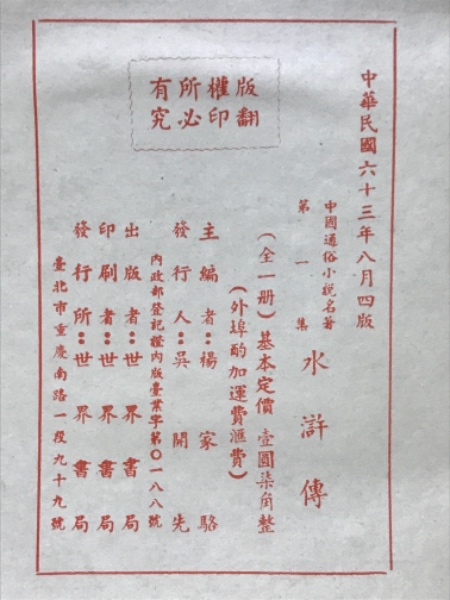 版權所有
翻印必究
中華民國六十三年八月四版
中國通俗小說名著
第一集
水滸傳
(全一册)基本定價 壹圓柒角整
(外埠酌加運費滙費)
主編者:楊家駱
發行人:吳開先
內政部登記證內版臺業字第〇一八八號
出版者:世界書局
印刷者:世界書局
發行所:世界書局
臺北市重慶南路一段九十九號